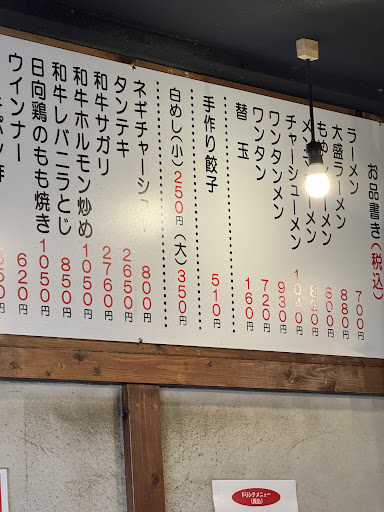 お品書き(税込)
ラーメン 700円
大盛ラーメン 880円
ーメン 円
ーメン 円
チャーシューメン 1040円
ワンタンメン 930円
ワンタン 720円
替玉 160円
手作り餃子 510円
白めし(小)250円(大)350円
ネギチャーシュー 800円
タンテキ 2650円
和牛サガリ 2760円
和牛ホルモン炒め 1050円
和牛レバニラとじ 850円
日向鶏のもも焼き 1050円
ウインナー 620円
円
ドリンクメニュー
(税込)